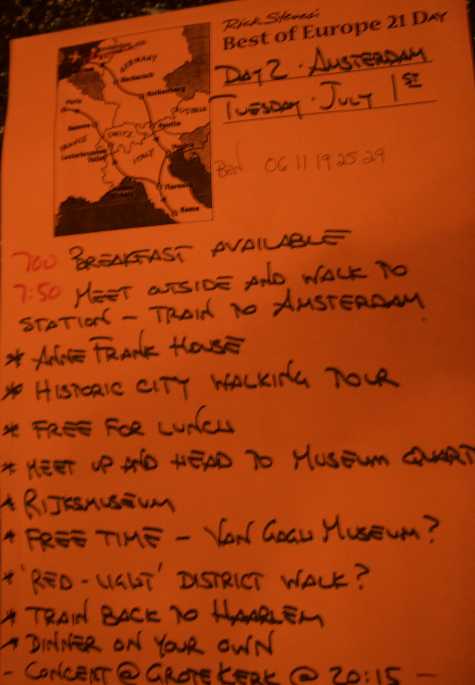 Rick Steves'
Best of Europe 21 Day
DAY 2 · AMSTERDAM
TUESDAY · JULY 1ST
Ben 06 11 19 25 29
GERMANY
Rothenburg
Paris
FRANCE
SWITZ
ITALY
Florence
Rome
700 BREAKFAST AVAILABLE
7:50 MEET OUTSIDE AND WALK TO
STATION - TRAIN TO AMSTERDAM
* ANNE FRANK HOUSE
* HISTORIC CITY WALKING TOUR
* FREE FOR LUNCH
* MEET UP AND HEAD TO MUSEUM QUART
* RIJKSMUSEUM
* FREE TIME - VAN GOGH MUSEUM?
* 'RED-LIGHT' DISTRICT WALK?
* TRAIN BACK TO HAARLEM
* DINNER ON YOUR OWN
- CONCERT @ GROTE KERK @ 20:15 -